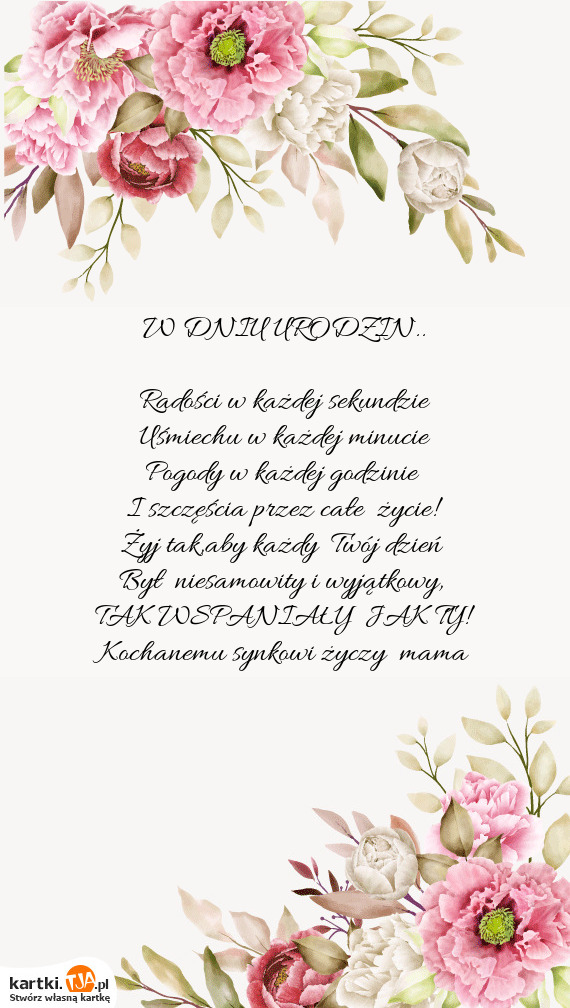 W DNIU URODZIN..
Radości w każdej sekundzie
Uśmiechu w każdej minucie
Pogody w każdej godzinie
I szczęścia przez całe życie!
Żyj tak,aby każdy Twój dzień
Był niesamowity i wyjątkowy,
TAK WSPANIAŁY JAK TY!
Kochanemu synkowi życzy mama
kartki.TJA.pl
Stwórz własną kartkę